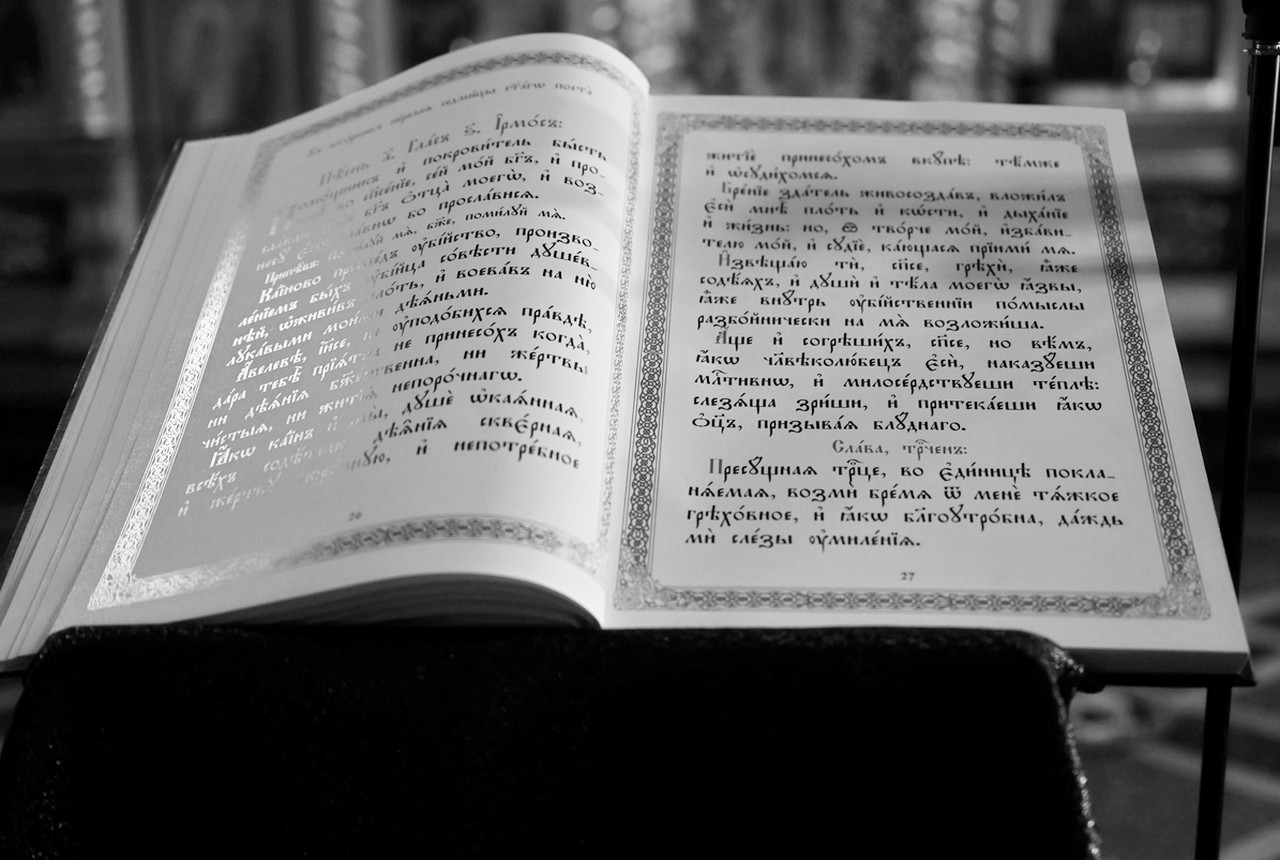 Пѣ́снь а҃. Гла́съ ѕ҃. І҆рмо́съ:
Помо́щникъ и҆ покрови́тель бы́сть
во спⷭ҇нїе, се́й мо́й бг҃ъ, и҆ про-
бг҃ъ ѻ҆тца̀ моегѡ̀, и҆ воз-
во просла́висѧ.
мѧ̀, бж҃е, поми́лꙋй мѧ̀.
Ка́їново ᲂу҆бі́йство, произво-
ле́нїемъ бы́хъ ᲂу҆бі́йца со́вѣсти дꙋше́в-
нѣй, ѡ҆живи́въ пло́ть, и҆ воева́въ на ню̀
лꙋка́выми мои́ми дѣѧ́ньми.
А҆́велевѣ, і҆и҃се, не ᲂу҆подо́бихсѧ пра́вдѣ,
да́ра тебѣ̀ прїѧ́тна не принесо́хъ когда̀,
ни дѣѧ́нїѧ бж҃е́ственна, ни же́ртвы
чи́стыѧ, ни житїѧ̀ непоро́чнагѡ.
Ꙗ҆́кѡ ка́їнъ и҆ мы̀, дꙋшѐ ѡ҆каѧ́ннаѧ,
всѣ́хъ дѣѧ̑нїѧ сквє́рнаѧ,
и҆ же́ртвꙋ и҆ непотре́бное
26
житїѐ принесо́хомъ вкꙋ́пѣ: тѣ́мже
и҆ ѡ҆сꙋди́хомсѧ.
Бре́нїе зда́тель живосозда́въ, вложи́лъ
є҆сѝ мнѣ̀ пло́ть и҆ кѡ́сти, и҆ дыха́нїе
и҆ жи́знь: но, ѽ тво́рче мо́й, и҆зба́ви-
телю мо́й, и҆ сꙋдїѐ, ка́ющасѧ прїими́ мѧ.
И҆звѣща́ю тѝ, сп҃се, грѣхѝ, ꙗ҆̀же
содѣ́ѧхъ, и҆ дꙋшѝ и҆ тѣ́ла моегѡ̀ ꙗ҆́звы,
ꙗ҆̀же внꙋ́трь ᲂу҆бі́йственнїи по́мыслы
разбо́йнически на мѧ̀ возложи́ша.
А҆́ще и҆ согрѣши́хъ, сп҃се, но вѣ́мъ,
ꙗ҆́кѡ чл҃вѣколю́бецъ є҆сѝ, наказꙋ́еши
млⷭ҇тивнѡ, и҆ милосе́рдствꙋеши те́плѣ:
слезѧ́ща зри́ши, и҆ притека́еши ꙗ҆́кѡ
ѻ҆ц҃ъ, призыва́ѧ блꙋ́днаго.
Сла́ва, трⷪ҇ченъ:
Пресꙋ́щнаѧ трⷪ҇це, во є҆ди́ницѣ покла-
нѧ́емаѧ, возмѝ бре́мѧ ѿ менѐ тѧ́жкое
грѣхо́вное, и҆ ꙗ҆́кѡ бл҃гоꙋтро́бна, да́ждь
мѝ сле́зы ᲂу҆миле́нїѧ.
27